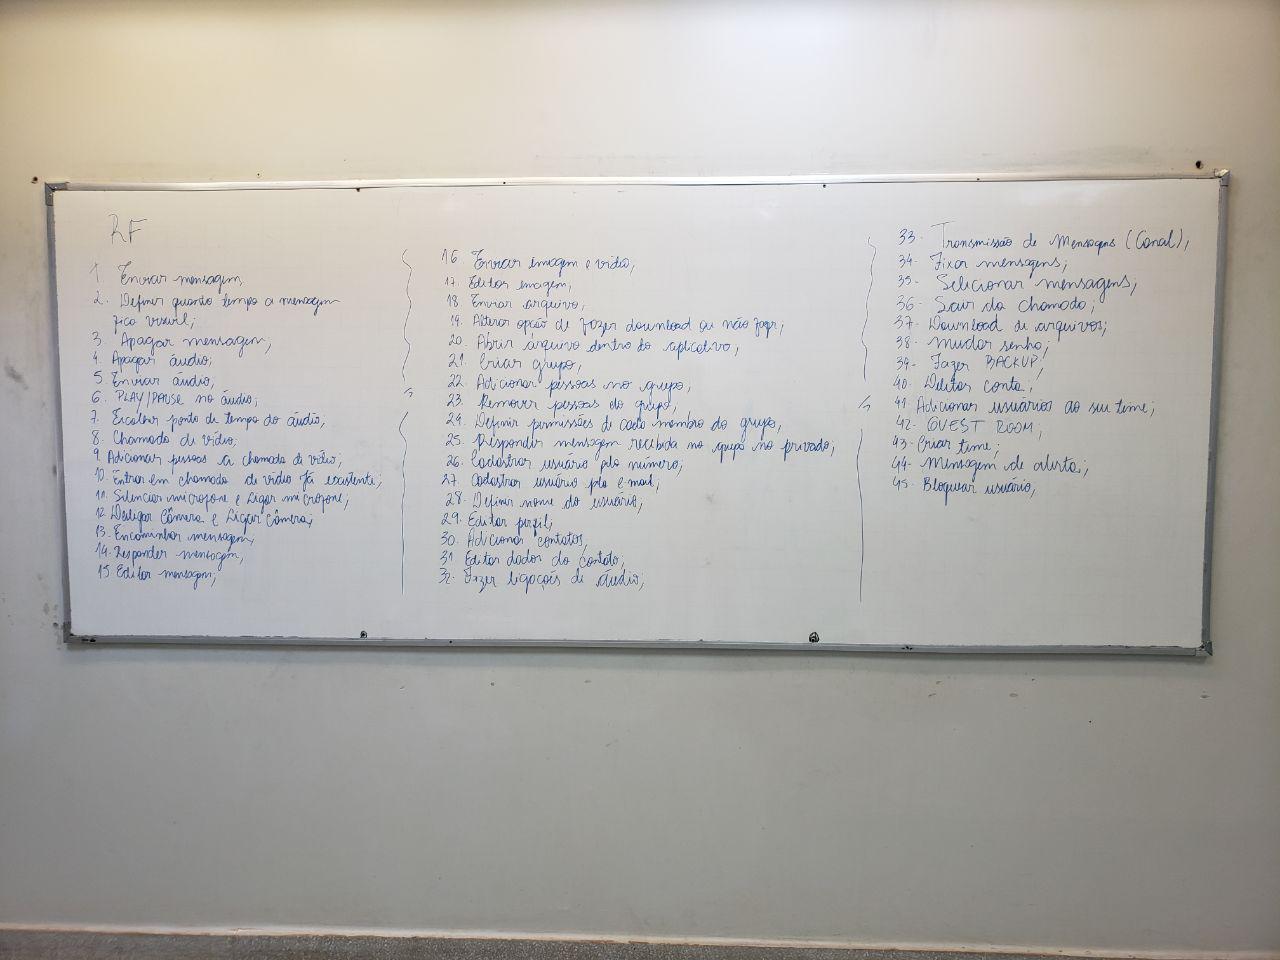 RF
1 Enviar mensagem
2. Definir quanto tempo a mensagem
fica visível;
3. Apagar mensagem;
4. Apagar áudio;
5. Enviar áudio;
6. PLAY/PAUSE no áudio;
7. Escolher ponto de tempo do áudio;
8. Chamada de vídeo;
9. Adicionar pessoas a chamada de vídeo;
10. Entrar em chamada de vídeo já existente;
11. Silenciar microfone e Ligar microfone;
12 Desligar Câmera e Ligar Câmera;
13. Encaminhar mensagem;
14. Responder mensagem;
15 Editar mensagem;
16. Enviar imagem e vídeo;
17. Editar imagem;
18. Enviar arquivo;
19. Alterar opção de fazer download ou não
20. Abrir arquivo dentro do aplicativo;
21. Criar grupo;
22. Adicionar pessoas no grupo;
23. Remover pessoas do grupo;
24. Definir permissões de cada membro do grupo;
25. Responder mensagem recebida no grupo no privado;
26. Cadastrar usuário pelo número;
27. Cadastrar usuário pelo e-mail;
28. Definir nome do usuário;
29. Editar perfil;
30. Adicionar contatos;
31 Editar dados do contato;
32. Fazer ligações de áudio;
33. Transmissão de Mensagens (Canal);
34. Fixar mensagens;
35. Selecionar mensagens;
36. Sair da chamada;
37. Download de arquivos;
38. Mudar senha;
39. Fazer BACKUP;
40. Deletar conta;
41. Adicionar usuários ao seu time;
42. GUEST ROOM;
43. Criar time;
44. Mensagem de alerta;
45. Bloquear usuário;